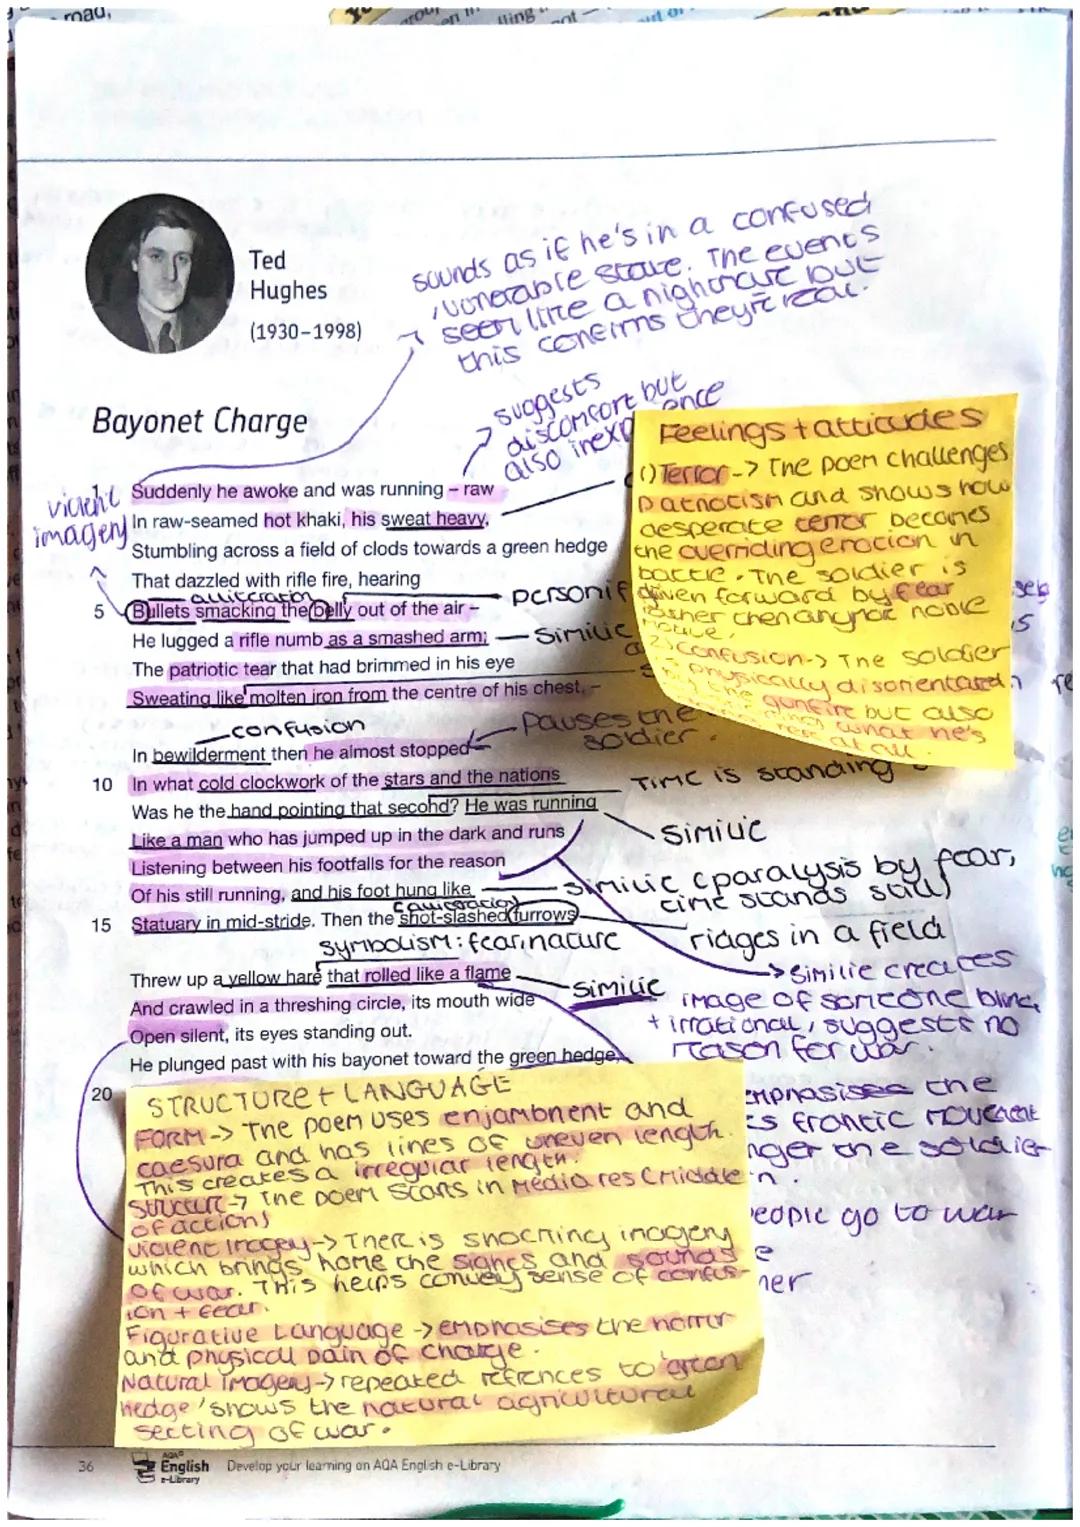 road,
Ted
Hughes
(1930–1998)
sounds as if he's in a confused
, vunerable state. The events
seem like a nightmare but
this confirms they're real.
Bayonet Charge
suggests
discomfort but
also inexp ence
violent
imagery
1 Suddenly he awoke and was running – raw
In raw-seamed hot khaki, his sweat heavy,
Stumbling across a field of clods towards a green hedge
That dazzled with rifle fire, hearing
alliteration
personif
5 Bullets smacking the belly out of the air –
He lugged a rifle numb as a smashed arm;
Similie
The patriotic tear that had brimmed in his eye
Sweating like molten iron from the centre of his chest, –
confusion
Pauses the
soldier.
In bewilderment then he almost stopped –
10 In what cold clockwork of the stars and the nations
Time is standing
Was he the hand pointing that second? He was running
Like a man who has jumped up in the dark and runs
Similie
Listening between his footfalls for the reason
Of his still running, and his foot hung like
similie (paralysis by fear,
time stands still)
(alliteration)
15 Statuary in mid-stride. Then the shot-slashed furrows
ridges in a field
symbolism: fear, nature
Threw up a yellow hare that rolled like a flame
Similie
And crawled in a threshing circle, its mouth wide
Open silent, its eyes standing out.
He plunged past with his bayonet toward the green hedge,
Similie creates
image of someone blind
+ irrational, suggests no
reason for war.
20
emphasises the
frantic movement
the soldier
in.
people go to war
Feelings + attitudes
1) Terror -> The poem challenges
patriotism and shows how
desperate terror becomes
the overriding emotion in
battle. The soldier is
driven forward by fear
rather than any noble
motive.
2) Confusion -> The soldier
physically disorientated
gunfire but also
what he's
at all.
STRUCTURE + LANGUAGE
FORM -> The poem uses enjambment and
caesura and has lines of uneven length.
This creates a irregular length.
Structure -> The poem starts in Media res (middle
of action)
Violent Imagey -> There is shocking imagery
which brings home the sights and sounds
of war. This helps convey sense of confus-
ion + fear.
Figurative Language -> emphasises the horror
and physical pain of charge.
Natural Imagery -> repeated refrences to 'green
hedge' shows the natural agricultural
setting of war.
36
AQA
English
e-Library
Develop your learning on AQA English e-Library